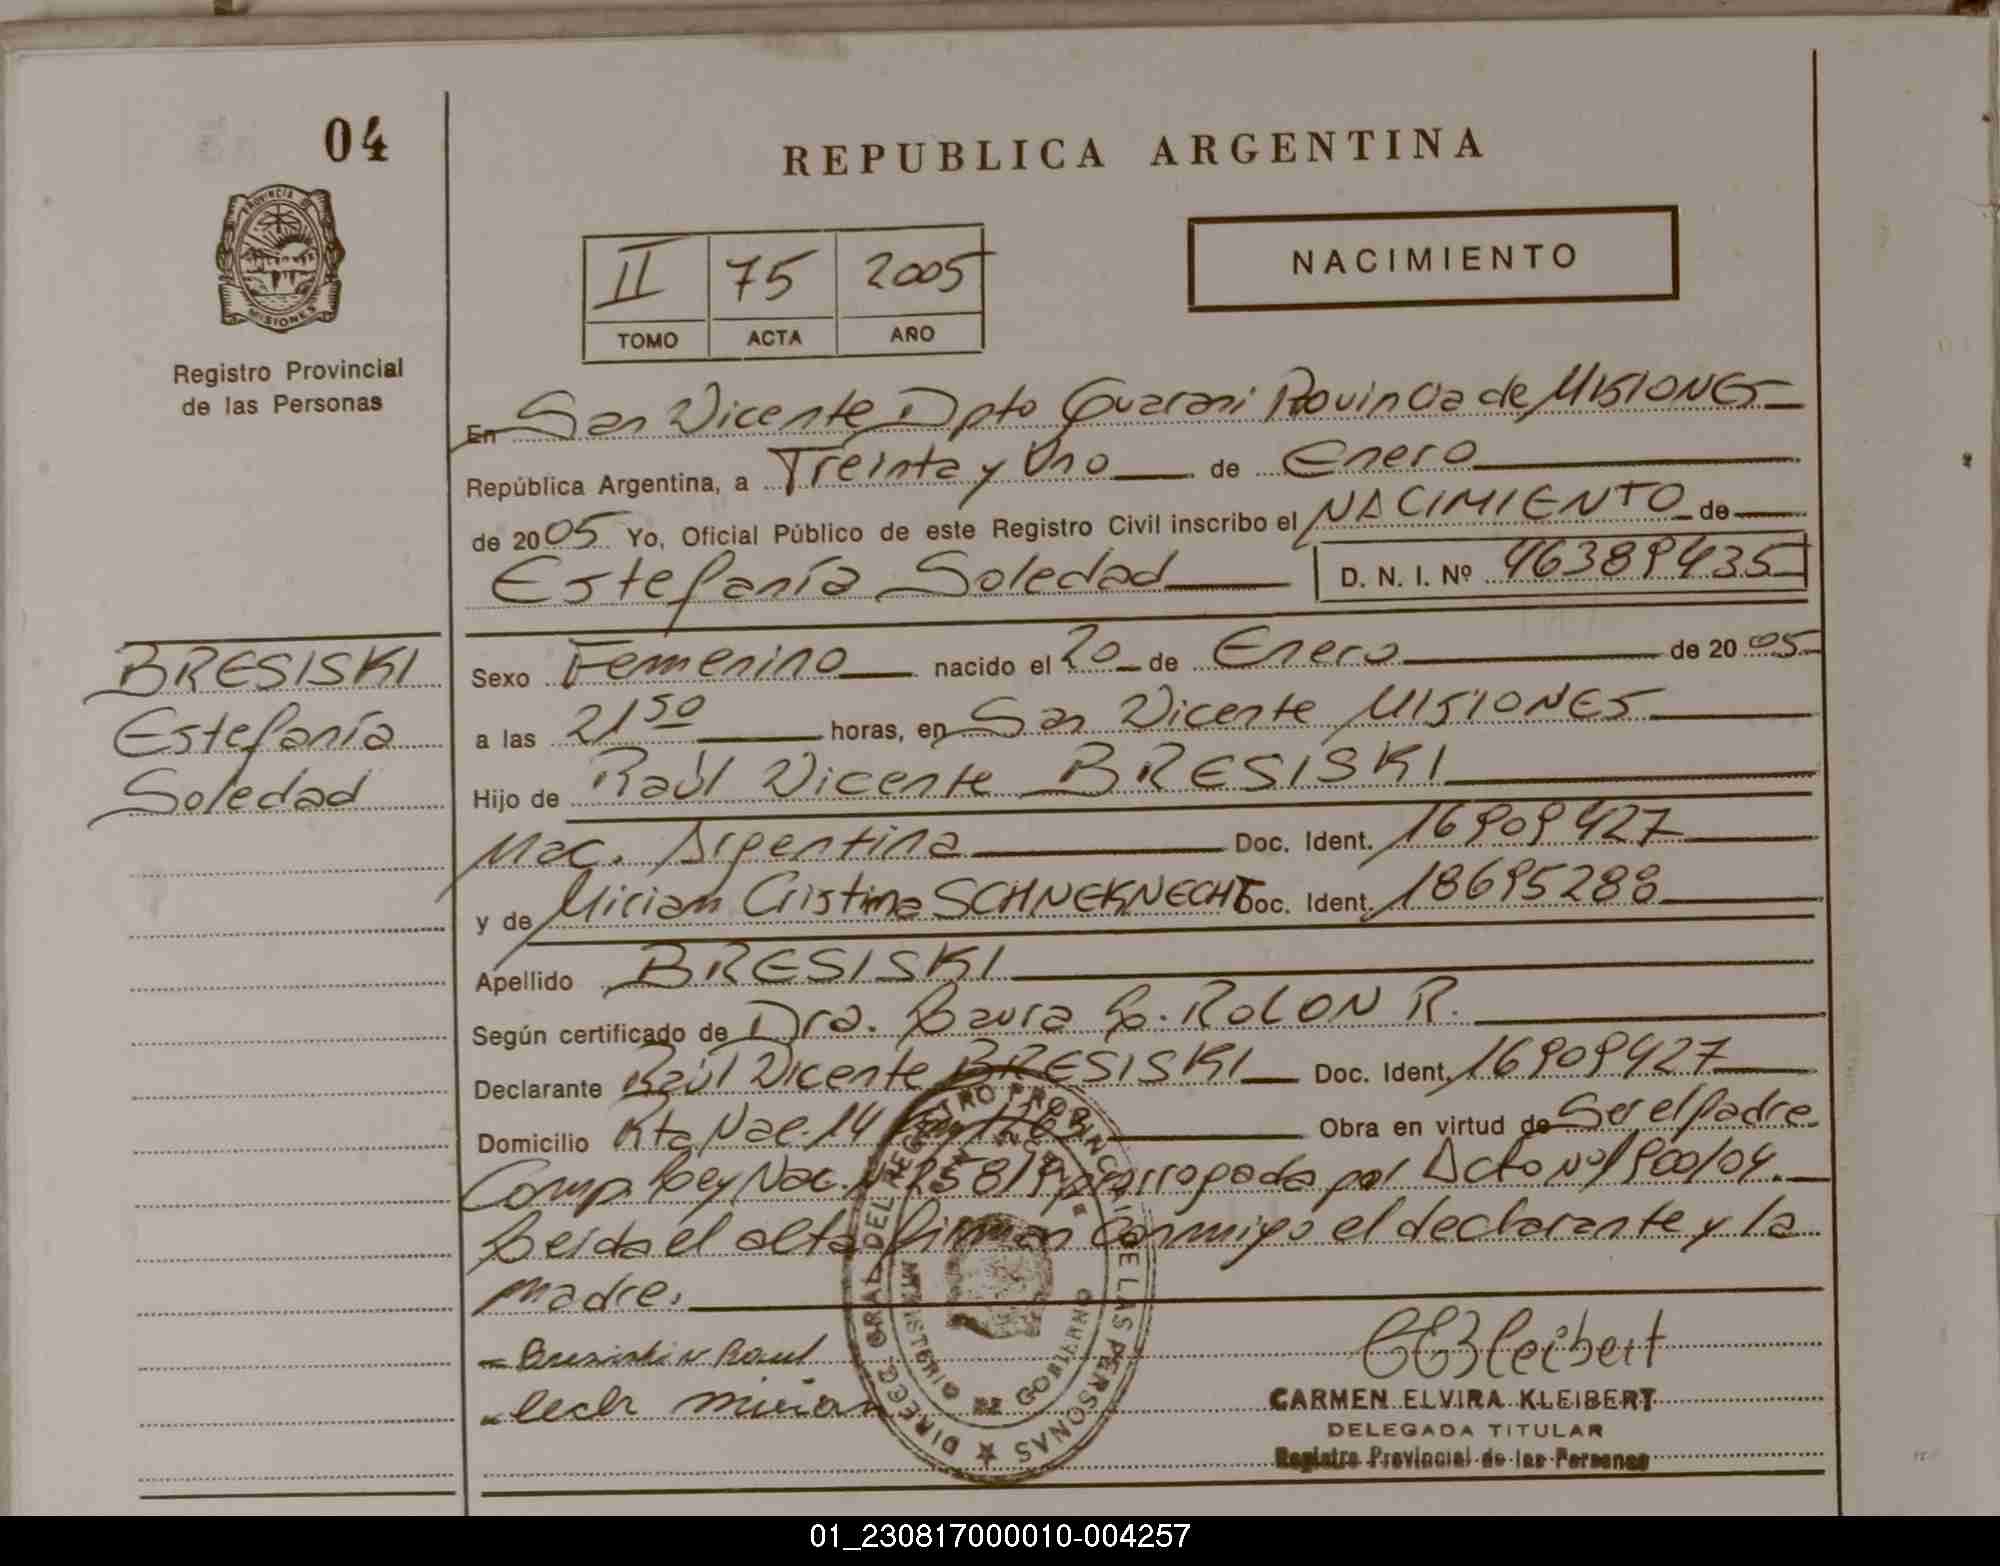 04
REPUBLICA ARGENTINA
PROVINCIA DE
MISIONES
Registro Provincial
de las Personas
II 75 2005
TOMO ACTA AÑO
NACIMIENTO
En San Vicente Dpto Guarani Provincia de MISIONES
República Argentina, a Treinta y Uno de Enero
de 2005 Yo, Oficial Público de este Registro Civil inscribo el NACIMIENTO de
Estefanía Soledad D. N. I. Nº 46389435
BRESISKI
Estefanía
Soledad
Sexo Femenino nacido el 20 de Enero de 2005
a las 21 50 horas, en San Vicente MISIONES
Hijo de Raúl Vicente BRESISKI
Nac. Argentina Doc. Ident. 16909427
y de Miriam Cristina SCHNEKNECHT Doc. Ident. 18695288
Apellido BRESISKI
Según certificado de Dra. Laura G. ROLON R.
Declarante Raúl Vicente BRESISKI Doc. Ident. 16909427
Domicilio Rta Nac. 14 Obra en virtud de Ser el Padre
Comp. Ley Nac. prorrogada por Dcto Nº 1900/04.
Leida el alta firman conmigo el declarante y la
madre.
Raul
CEKleibert
CARMEN ELVIRA KLEIBERT
DELEGADA TITULAR
Registro Provincial de las Personas
DIREC. GRAL. DEL REGISTRO PROVINCIAL DE LAS PERSONAS
MINISTERIO DE GOBIERNO
01_230817000010-004257